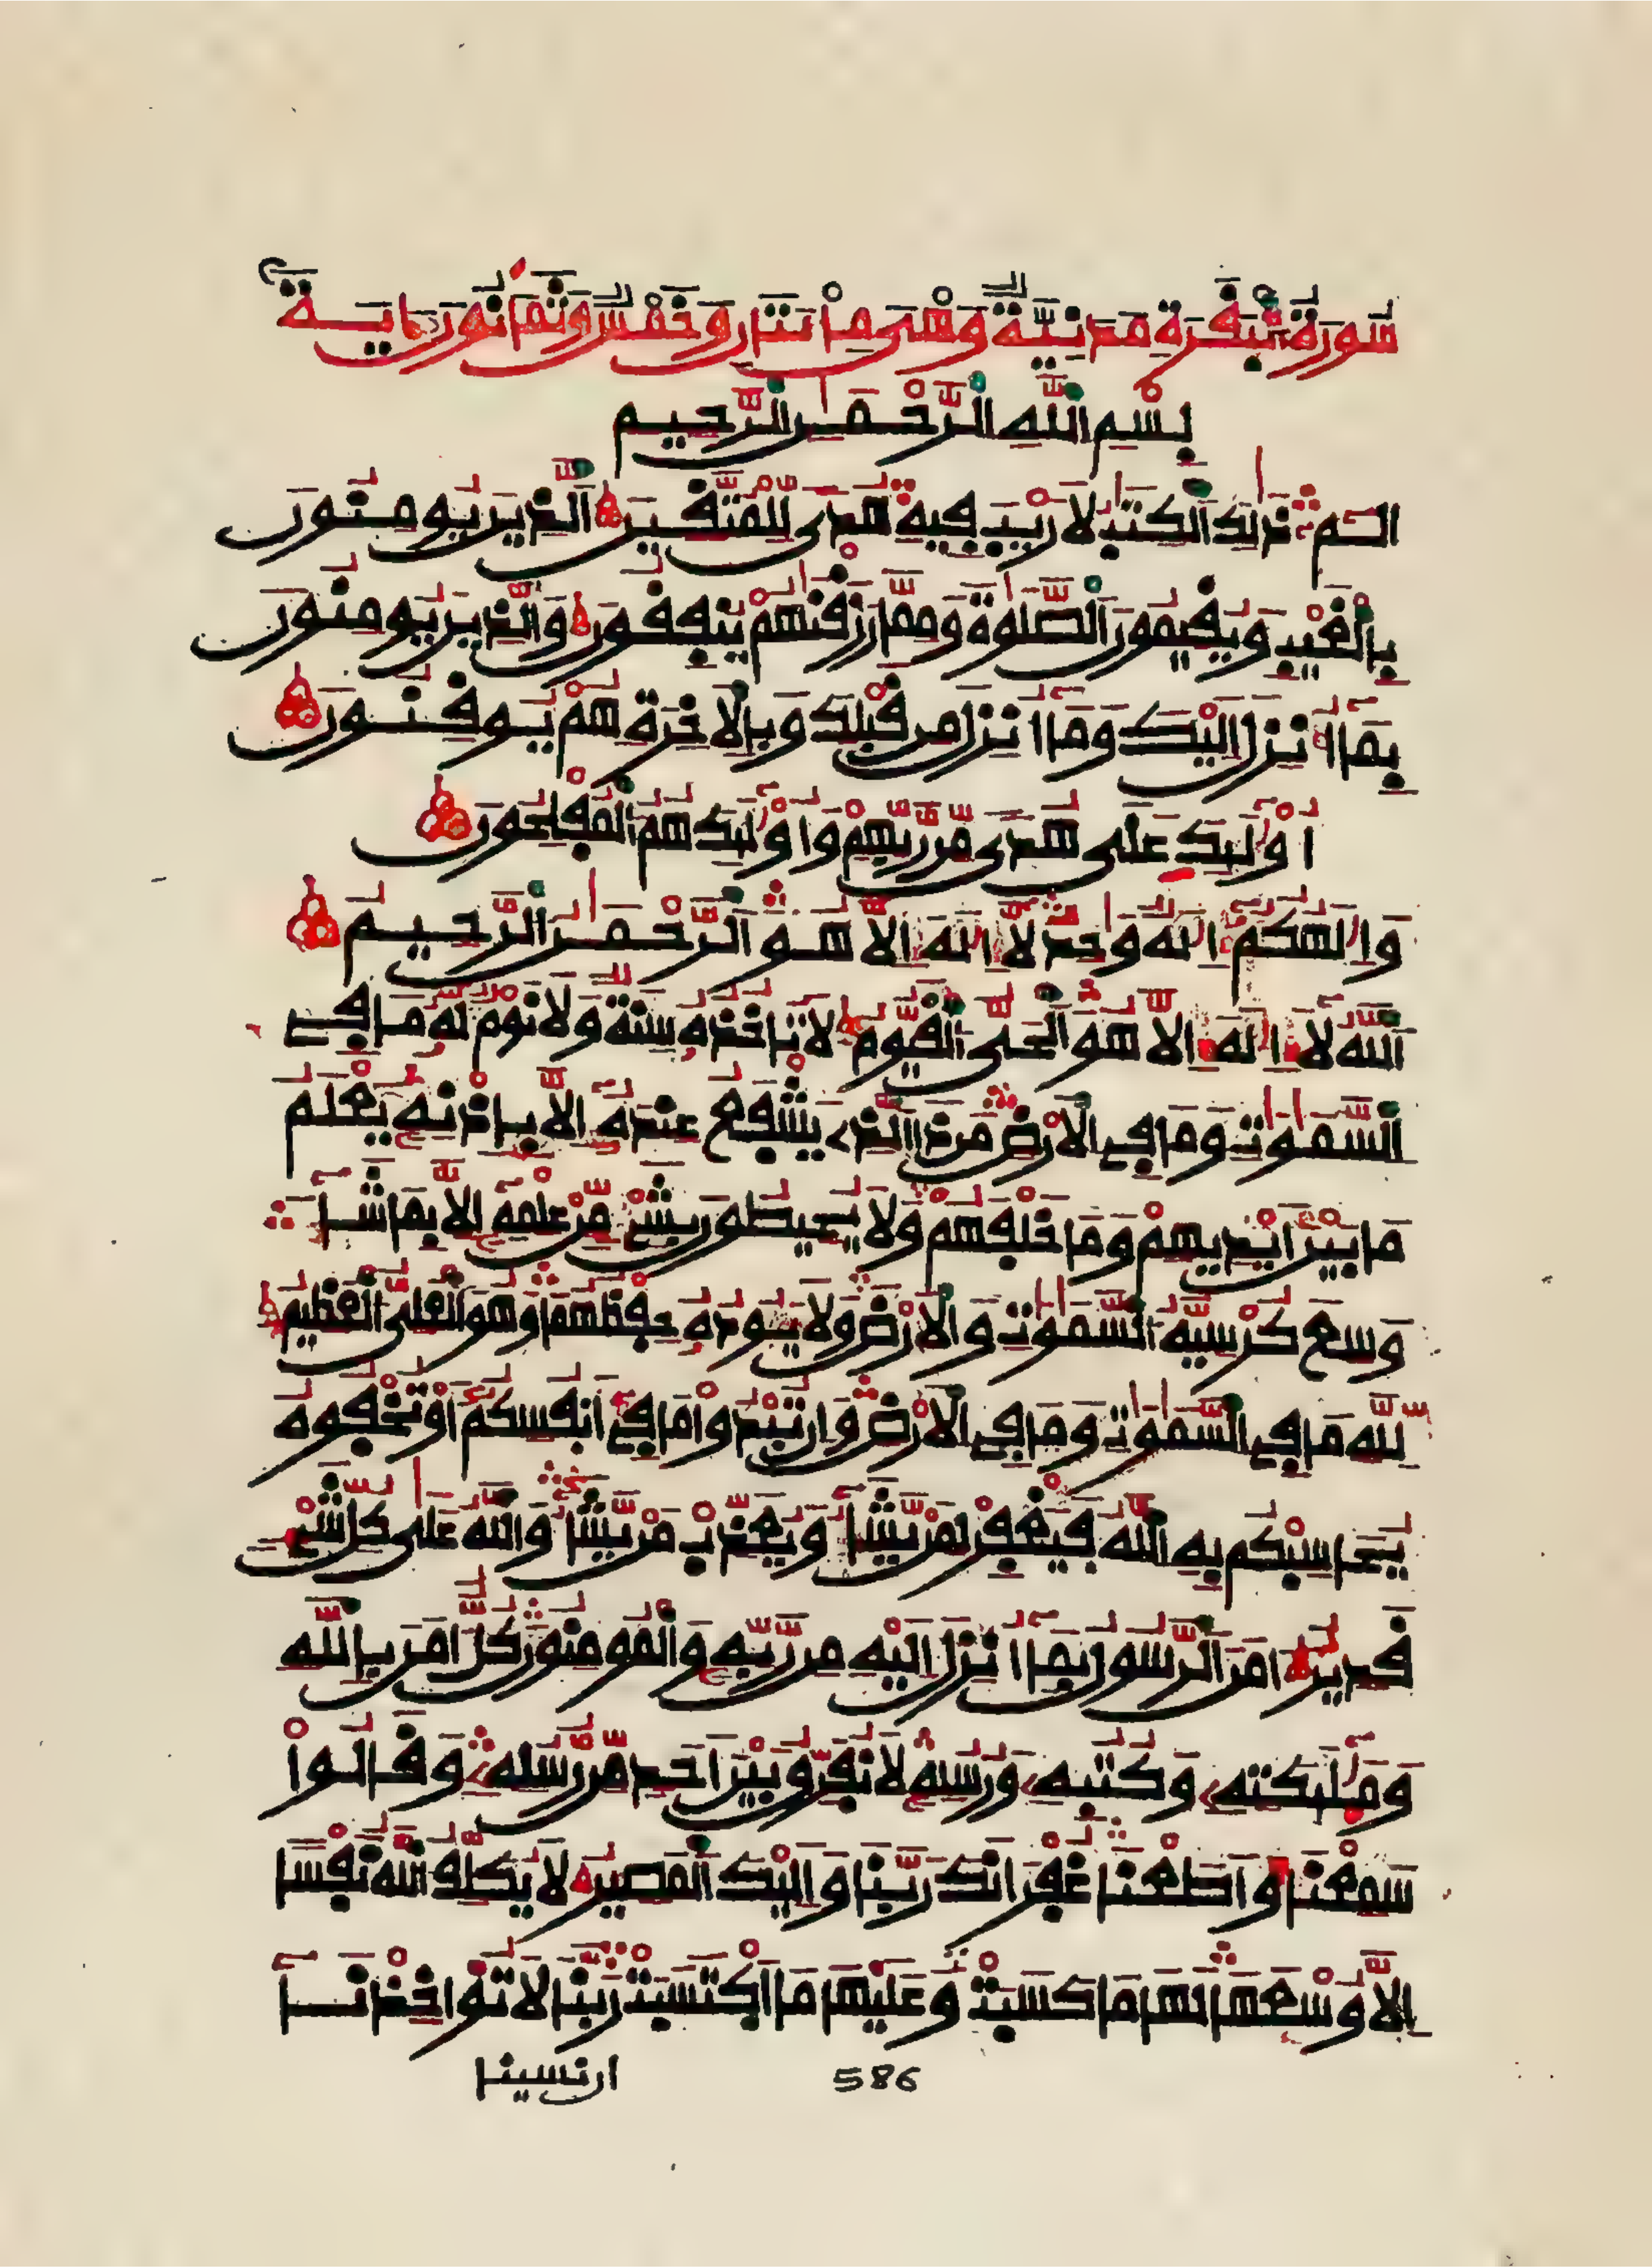 سورة البقرة مدنية وهي مائتان وخمس وثمانون ءاية
بسم الله الرحمن الرحيم
الم ذلك الكتب لا ريب فيه هدى للمتقين الذين يومنون
بالغيب ويقيمون الصلوة ومما رزقنهم ينفقون والذين يومنون
بما أنزل إليك وما أنزل من قبلك وبالاخرة هم يوقنون
أولئك على هدى من ربهم وأولئك هم المفلحون
وإلهكم إله وحد لا إله إلا هو الرحمن الرحيم
الله لا إله إلا هو الحي القيوم لا تاخذه سنة ولا نوم له ما في
السموت وما في الارض من ذا الذي يشفع عنده إلا بإذنه يعلم
ما بين أيديهم وما خلفهم ولا يحيطون بشيء من علمه إلا بما شا
وسع كرسيه السموت والارض ولا يوده حفظهما وهو العلي العظيم
لله ما في السموت وما في الارض وإن تبدوا ما في أنفسكم أو تخفوه
يحاسبكم به الله فيغفر لمن يشا ويعذب من يشا والله على كل شيء
قدير امن الرسول بما أنزل إليه من ربه والمومنون كل امن بالله
وملئكته وكتبه ورسله لا نفرق بين أحد من رسله وقالوا
سمعنا وأطعنا غفرانك ربنا وإليك المصير لا يكلف الله نفسا
إلا وسعها لها ما كسبت وعليها ما اكتسبت ربنا لا تواخذنا
586 ان نسينا